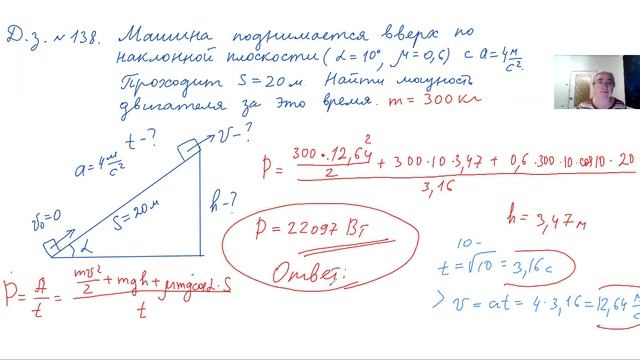 Д.з. №138. Машина поднимается вверх по
наклонной плоскости (α=10°, μ=0,6) с a=4 м/с².
Проходит S=20м. Найти мощность
двигателя за это время. m = 300 кг
t-?
v-?
a=4 м/с²
v₀=0
S=20м
h-?
α
P = (300·12,64²/2 + 300·10·3,47 + 0,6·300·10·cos10·20)/3,16
P = 22097 Вт
Ответ:
h = 3,47м
10-
t=√10 = 3,16 с
v = at = 4·3,16 = 12,64 м/с
P = A/t = (mv²/2 + mgh + μmgcosα·S)/t